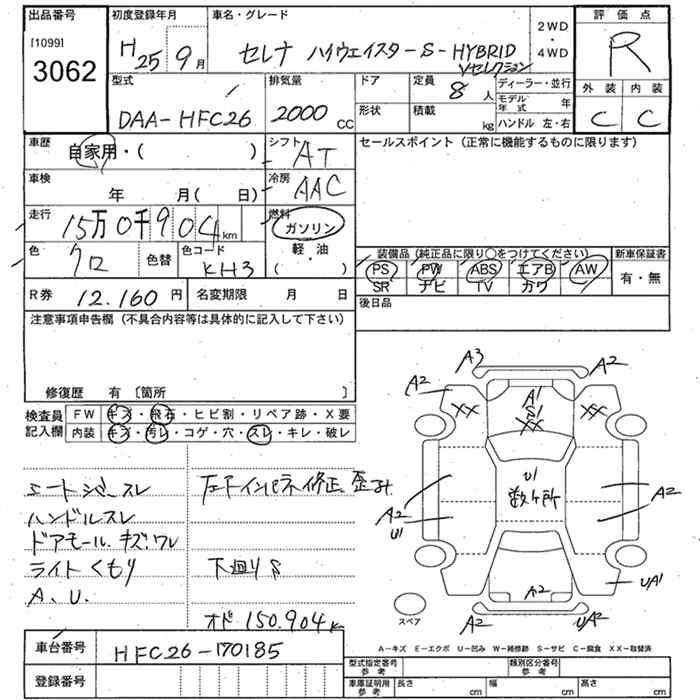 出品番号
[1099]
3062
初度登録年月
H25 9月
車名・グレード
セレナ ハイウェイスターS-HYBRID
Vセレクション
2WD
・
4WD
評価点
R
外装 内装
C C
型式
DAA-HFC26
排気量
2000 CC
ドア
形状
定員
8人
積載
kg
ディーラー・並行
モデル年式 年
ハンドル 左・右
車歴
自家用・( )
シフト
AT
セールスポイント (正常に機能するものに限ります)
車検
年 月( 日)
冷房
AAC
走行
15万0千904km
燃料
ガソリン
軽・油
( )
色
クロ
色替
色コード
KH3
装備品(純正品に限り〇をつけてください)
新車保証書
PS PW ABS エアB AW
SR ナビ TV カワ
有・無
R券 12.160円
名変期限 月 日
後日品
注意事項申告欄(不具合内容等は具体的に記入して下さい)
修復歴 有 〔箇所 〕
検査員記入欄
FW キズ・飛石・ヒビ割・リペア跡・X要
内装 キズ・汚レ・コゲ・穴・スレ・キレ・破レ
シートシワ.スレ
ハンドルスレ
ドアモール.キズ.ワレ
ライトくもり
A.U.
左Fインパネ修正、歪み.
下廻りS
オド150.904K
A3
A2 A2
XX XX
A1
S1
XX
U1
数ヶ所
A2
U1
A2
A2
UA1
A2 UA2
スペア
A-キズ E-エクボ U-凹み W-補修跡 S-サビ C-腐食 XX-取替済
車台番号
HFC26-170185
登録番号
型式指定番号
参考
類別区分番号
参考
車庫証明用
参考
長さ cm
幅 cm
高さ cm